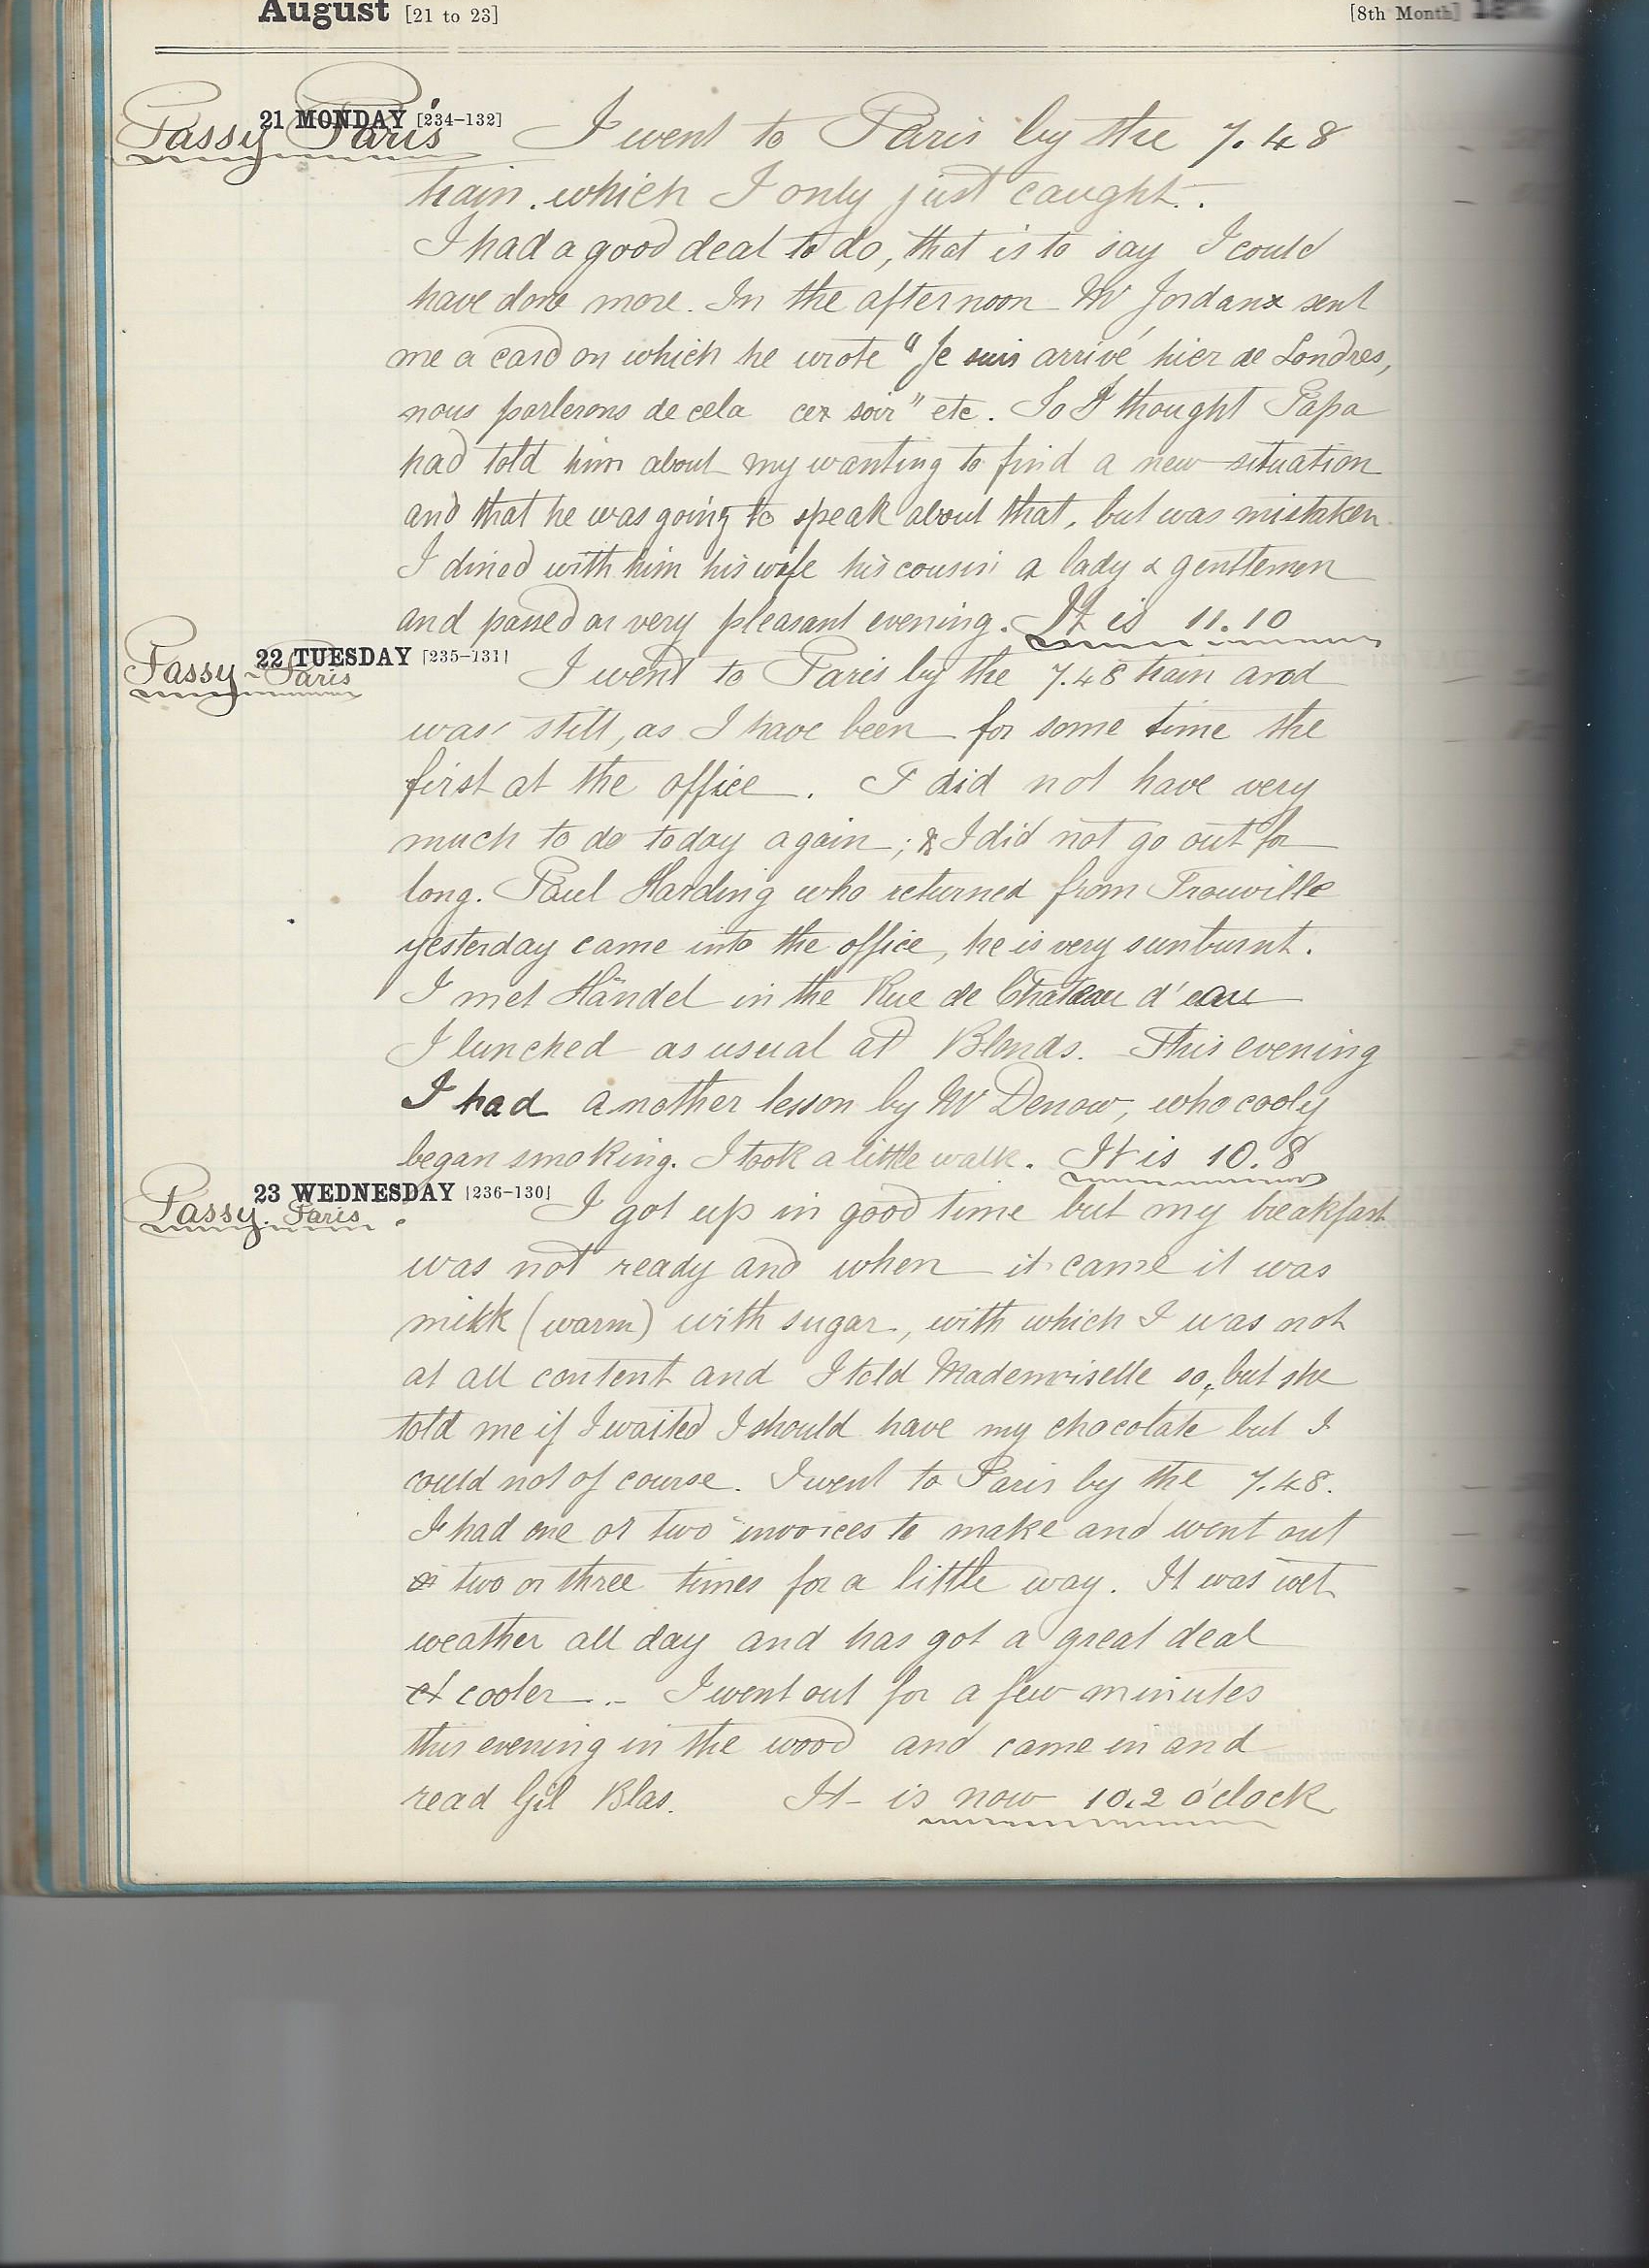 August [21 to 23] [8th Month]
21 MONDAY [234-132]
Passy Paris I went to Paris by the 7.48
train. which I only just caught.
I had a good deal to do, that is to say I could
have done more. In the afternoon Mr Jordan sent
me a card on which he wrote "Je suis arrivé hier de Londres,
nous parlerons de cela ce soir" etc. So I thought Papa
had told him about my wanting to find a new situation
and that he was going to speak about that, but was mistaken
I dined with him his wife his cousin a lady & gentlemen
and passed a very pleasant evening. It is 11.10
22 TUESDAY [235-131]
Passy - Paris I went to Paris by the 7.48 train and
was still, as I have been for some time the
first at the office. I did not have very
much to do today again; & I did not go out for
long. Paul Harding who returned from Trouville
yesterday came into the office, he is very sunburnt.
I met Händel in the Rue de Chateau d'eau
I lunched as usual at Blonds. This evening
I had another lesson by Mr Denow, who cooly
began smoking. I took a little walk. It is 10.8
23 WEDNESDAY [236-130]
Passy. Paris. I got up in good time but my breakfast
was not ready and when it came it was
milk (warm) with sugar, with which I was not
at all content and I told Mademoiselle so, but she
told me if I waited I should have my chocolate but I
could not of course. I went to Paris by the 7.48.
I had one or two invoices to make and went out
two or three times for a little way. It was wet
weather all day and has got a great deal
cooler. - I went out for a few minutes
this evening in the wood and came in and
read Gil Blas. It is now 10.2 o'clock